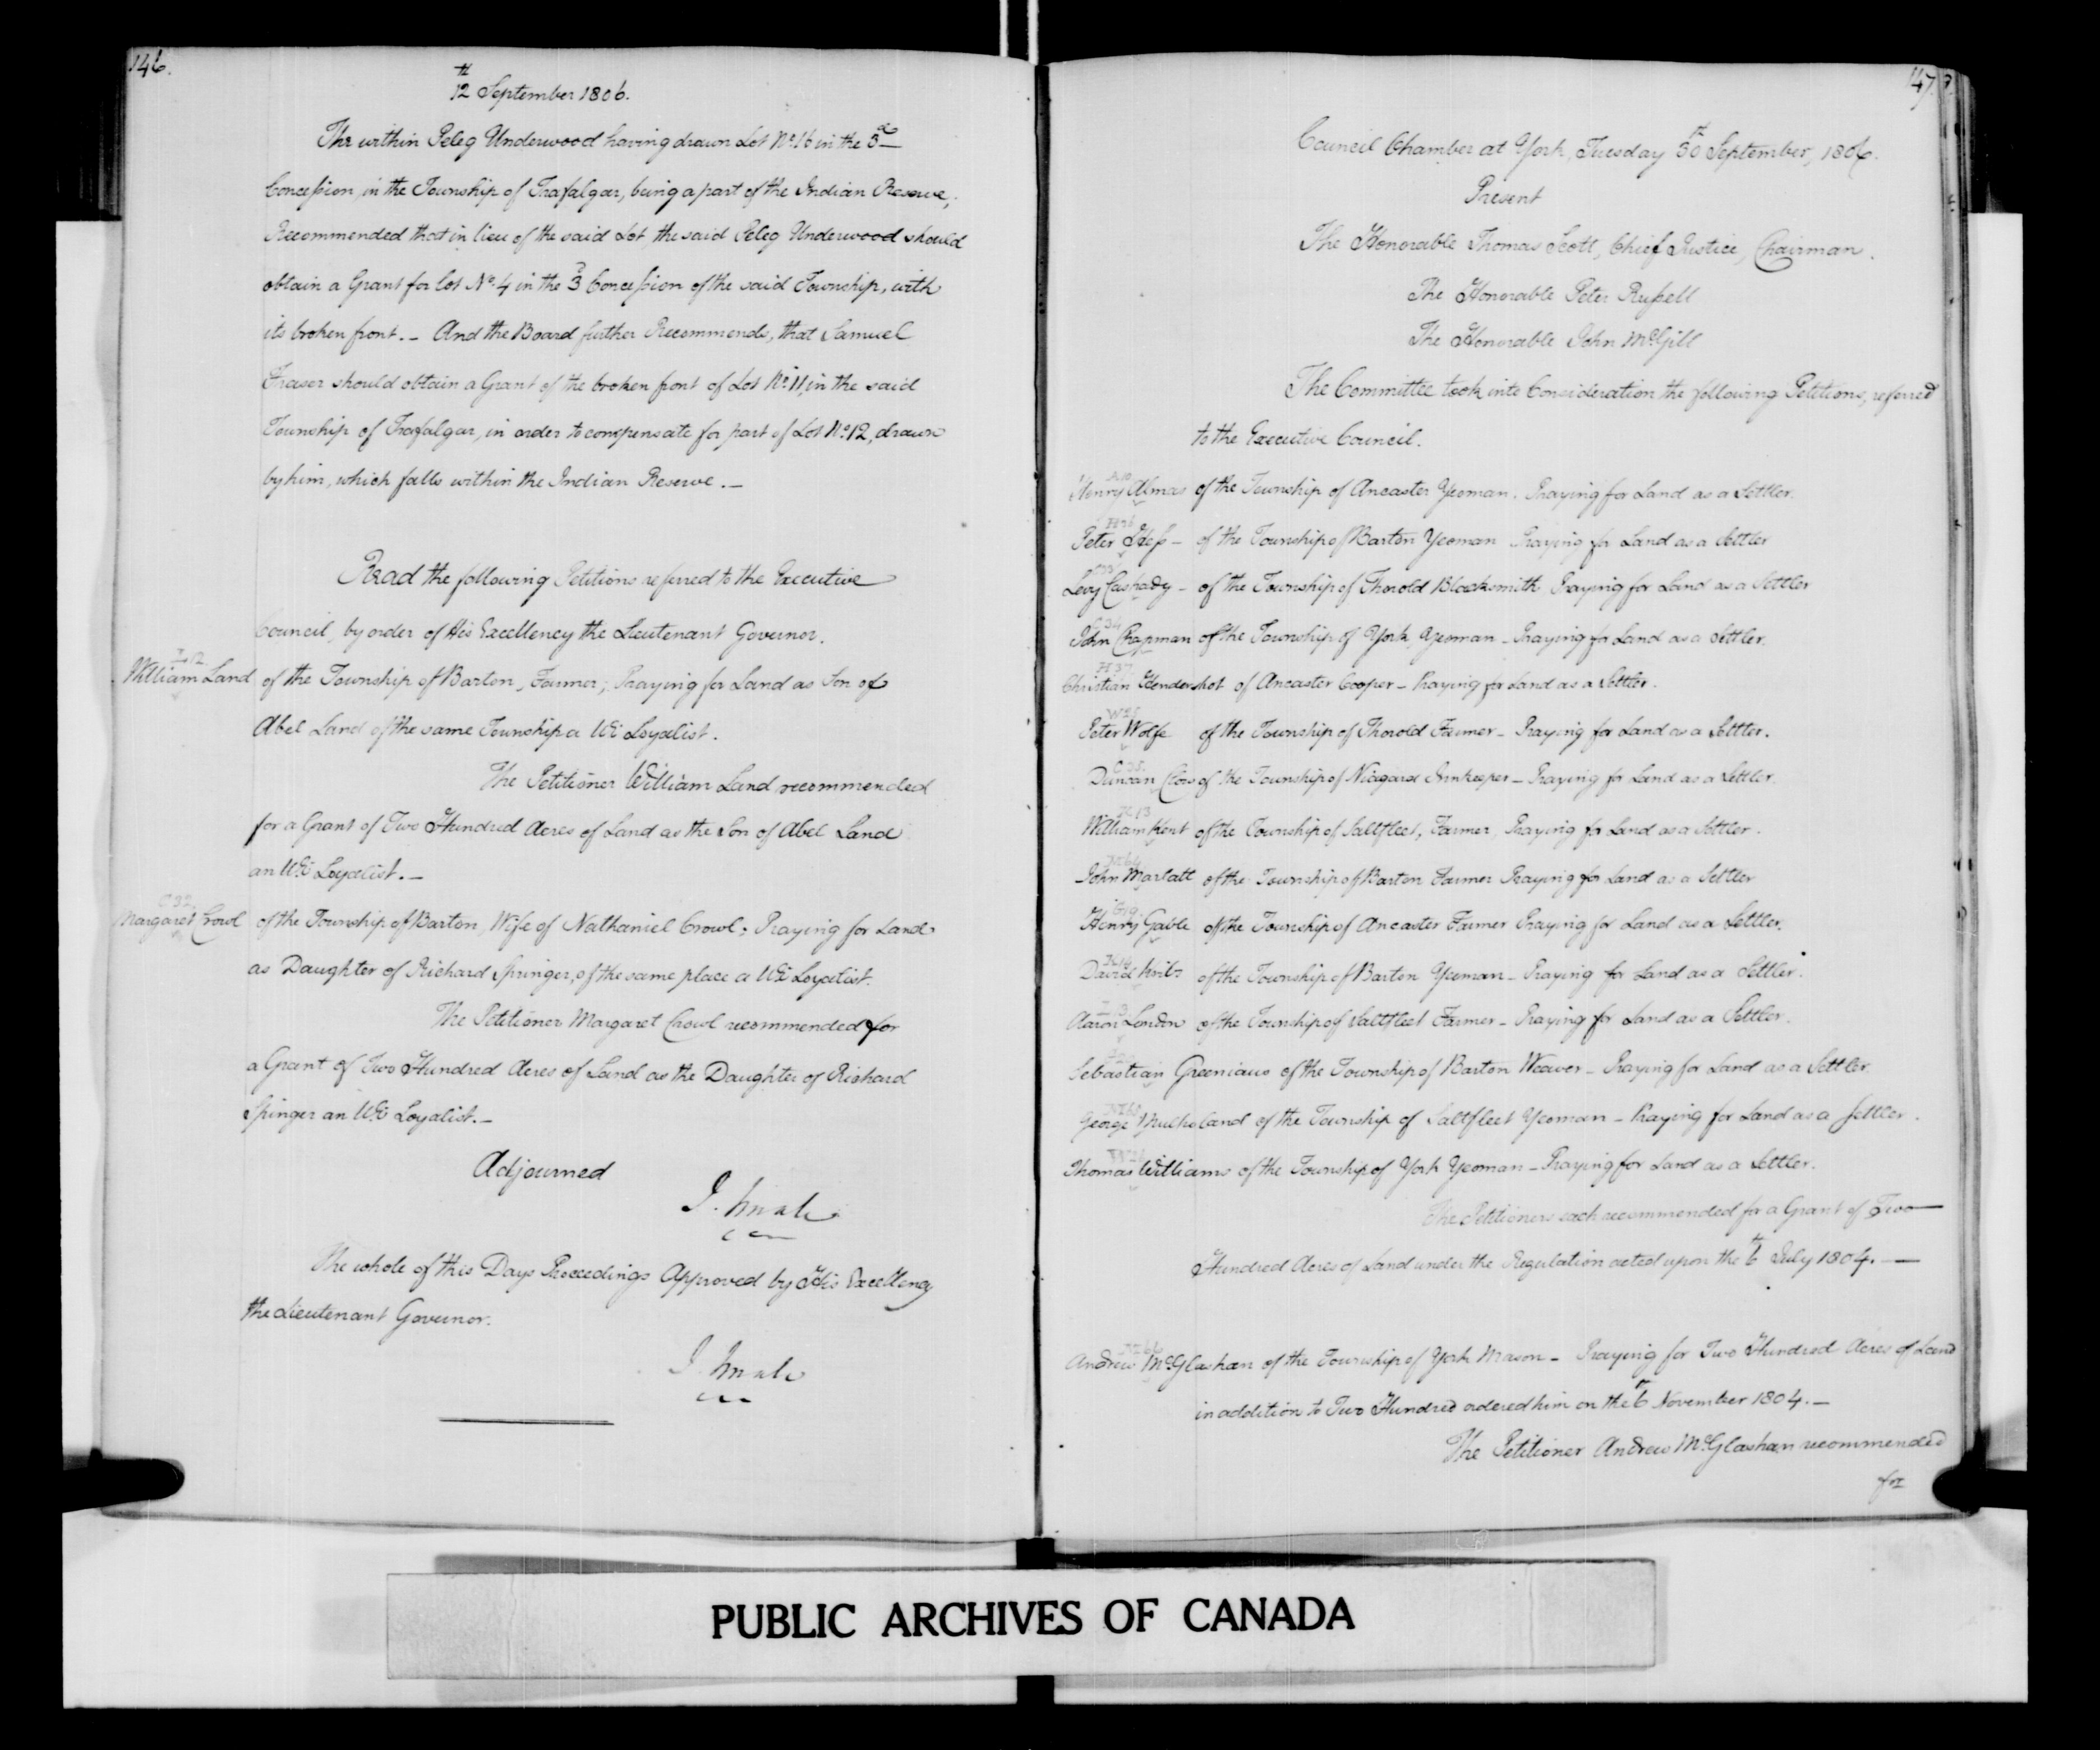 146.
12th September 1806.
The within Peleg Underwood having drawn Lot No. 16 in the 3d
Concession, in the Township of Trafalgar, being a part of the Indian Reserve,
Recommended that in lieu of the said Lot, the said Peleg Underwood should
obtain a Grant for Lot No. 4 in the 3d Concession of the said Township, with
its broken front. – And the Board further Recommends, that Samuel
Fraser should obtain a Grant of the broken front of Lot No. 11, in the said
Township of Trafalgar, in order to compensate for part of Lot No. 12, drawn
by him, which falls within the Indian Reserve. –
Read the following Petitions referred to the Executive
Council, by order of His Excellency the Lieutenant Governor.
L 12.
William Land of the Township of Barton, Farmer; Praying for Land as Son of
Abel Land of the same Township a UE Loyalist.
The Petitioner William Land recommended
for a Grant of Two Hundred Acres of Land as the Son of Abel Land
an UE Loyalist. –
C 32.
Margaret Crowl of the Township of Barton, Wife of Nathaniel Crowl; Praying for Land
as Daughter of Richard Springer, of the same place a UE Loyalist.
The Petitioner Margaret Crowl recommended for
a Grant of Two Hundred Acres of Land as the Daughter of Richard
Springer an UE Loyalist. –
Adjourned
The whole of this Days Proceedings Approved by His Excellency
the Lieutenant Governor.
147.
Council Chamber at York, Tuesday 30th September, 1806.
Present
The Honorable Thomas Scott, Chief Justice, Chairman.
The Honorable Peter Russell
The Honorable John McGill
The Committee took into Consideration the following Petitions, referred
to the Executive Council.
A 10.
Henry Almas of the Township of Ancaster Yeoman. Praying for Land as a Settler.
H 36
Peter Hess – of the Township of Barton Yeoman Praying for Land as a Settler
C 33
Levy Cashady – of the Township of Thorold Blacksmith Praying for Land as a Settler
C 34
John Chapman of the Township of York Yeoman – Praying for Land as a Settler.
H 37
Christian Hendershot of Ancaster Cooper – Praying for Land as a Settler.
W 25
Peter Wolfe of the Township of Thorold Farmer – Praying for Land as a Settler.
C 35.
Duncan Clow of the Township of Niagara Innkeeper – Praying for Land as a Settler.
K 13
William Kent of the Township of Saltfleet, Farmer, Praying for Land as a Settler.
M 64
John Marlatt of the Township of Barton Farmer Praying for Land as a Settler
G 19
Henry Gable of the Township of Ancaster Farmer Praying for Land as a Settler.
K 14
David Kribs of the Township of Barton Yeoman – Praying for Land as a Settler.
L 13.
Aaron London of the Township of Saltfleet Farmer – Praying for Land as a Settler.
Sebastian Greeniaus of the Township of Barton Weaver – Praying for Land as a Settler.
M 65
George Mulholand of the Township of Saltfleet Yeoman – Praying for Land as a Settler.
W 26
Thomas Williams of the Township of York Yeoman – Praying for Land as a Settler.
The Petitioners each recommended for a Grant of Two
Hundred Acres of Land under the Regulation acted upon the 6th July 1804. –
M 66
Andrew McGlashan of the Township of York Mason – Praying for Two Hundred Acres of Land
in addition to Two Hundred ordered him on the 6th November 1804. –
The Petitioner Andrew McGlashan recommended
for
PUBLIC ARCHIVES OF CANADA